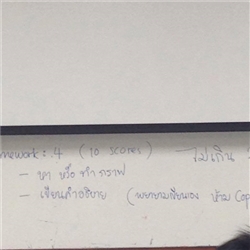 mework : 4 (10 scores) ไม่เกิน
- หา หรือ ทำ กราฟ
- เขียนคำอธิบาย (พยายามเขียนเอง ห้าม Cop